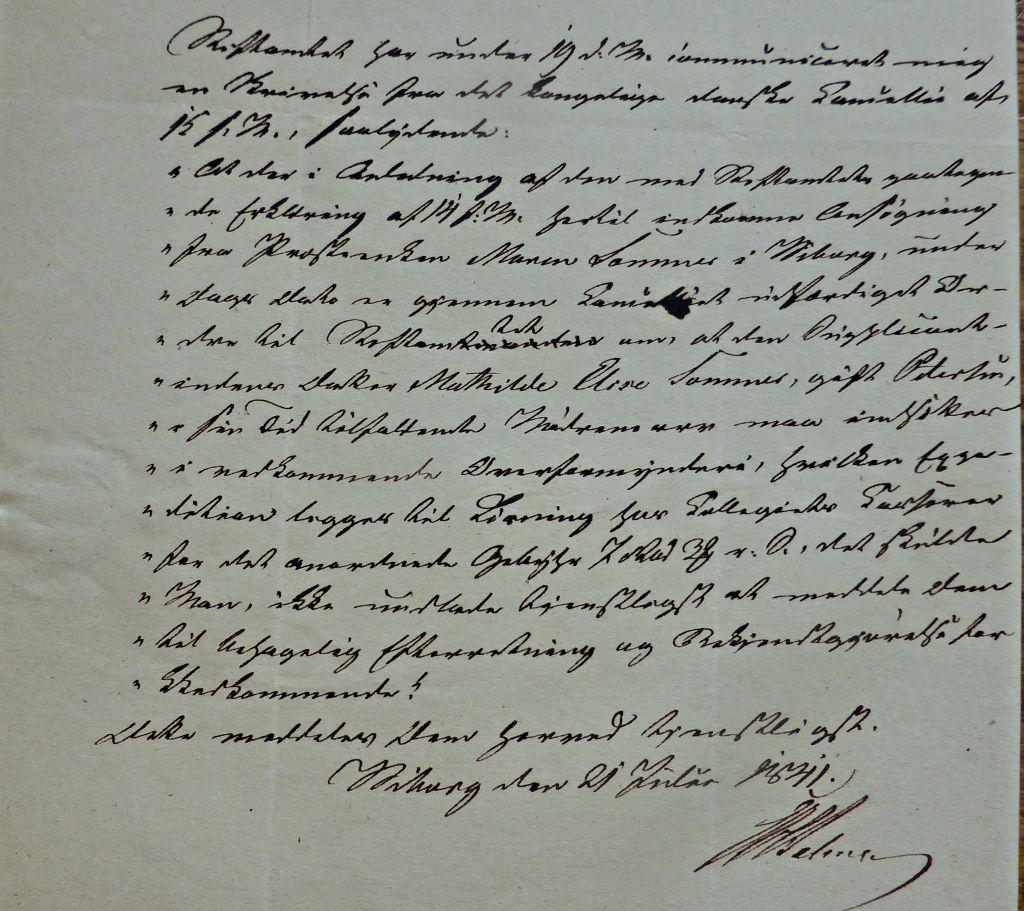 Stiftamtet har under 19 d: M. communiceret mig
en Skrivelse fra det kongelige danske Cancellie af
15 s: M., saalydende:
"At der i Anledning af den med Stiftamtets paategne
"de Erklæring af 14 f: M. hertil indkomne Ansøgning
"fra Provsteenken Maren Sommer i Wiborg, under
"Dags Dato er gjennem Cancelliet udfærdiget Or-
"dre til Stiftamtet om, at den Supplicant-
"indens Datter Mathilde Elise Sommer, gift Petersen,
"sin Tid tilfaldende Mødrenearv maa indsættes
"i vedkommende Overformynderi, hvilken Expe-
"dition lægges til Løsning hos Collegiets Casserer
"for det anordnede Gebyhr 7 rbd 2 ß r: S., det skulde
"Man, ikke undlade tjenstligst at meddele Dem
"til behagelig Efterretning og Bekjendtgjørelse for
"Vedkommende."
Dette meddeles Dem herved tjenstligst.
Wiborg den 21 Julii 1841.